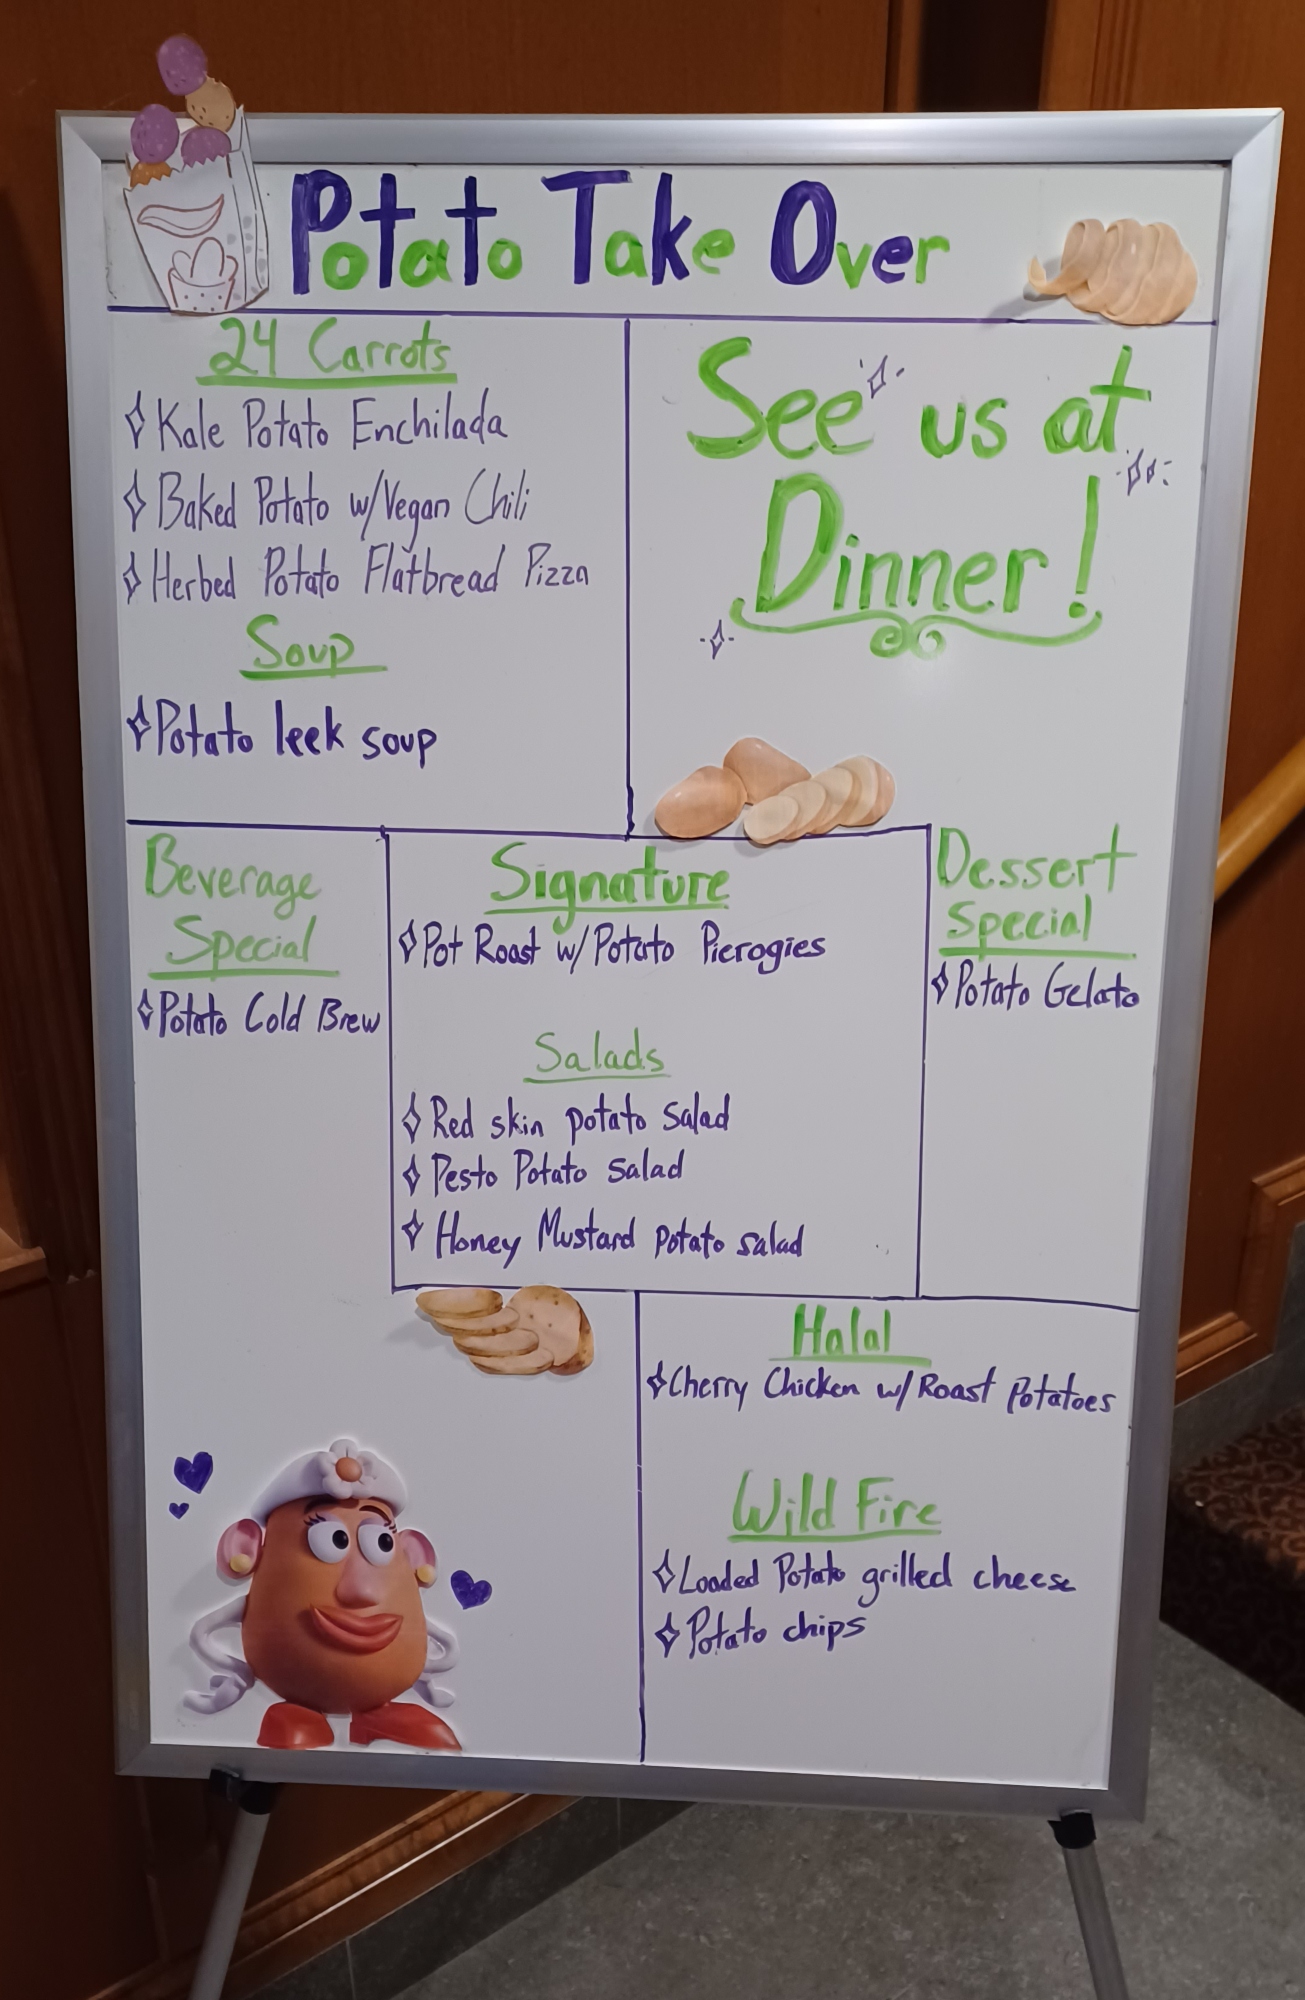 Potato Take Over
24 Carrots
Kale Potato Enchilada
Baked Potato w/Vegan Chili
Herbed Potato Flatbread Pizza
Soup
Potato leek soup
See us at
Dinner!
Beverage
Special
Potato Cold Brew
Signature
Pot Roast w/Potato Pierogies
Salads
Red skin potato salad
Pesto Potato salad
Honey Mustard potato salad
Dessert
Special
Potato Gelato
Halal
Cherry Chicken w/Roast Potatoes
Wild Fire
Loaded Potato grilled cheese
Potato chips